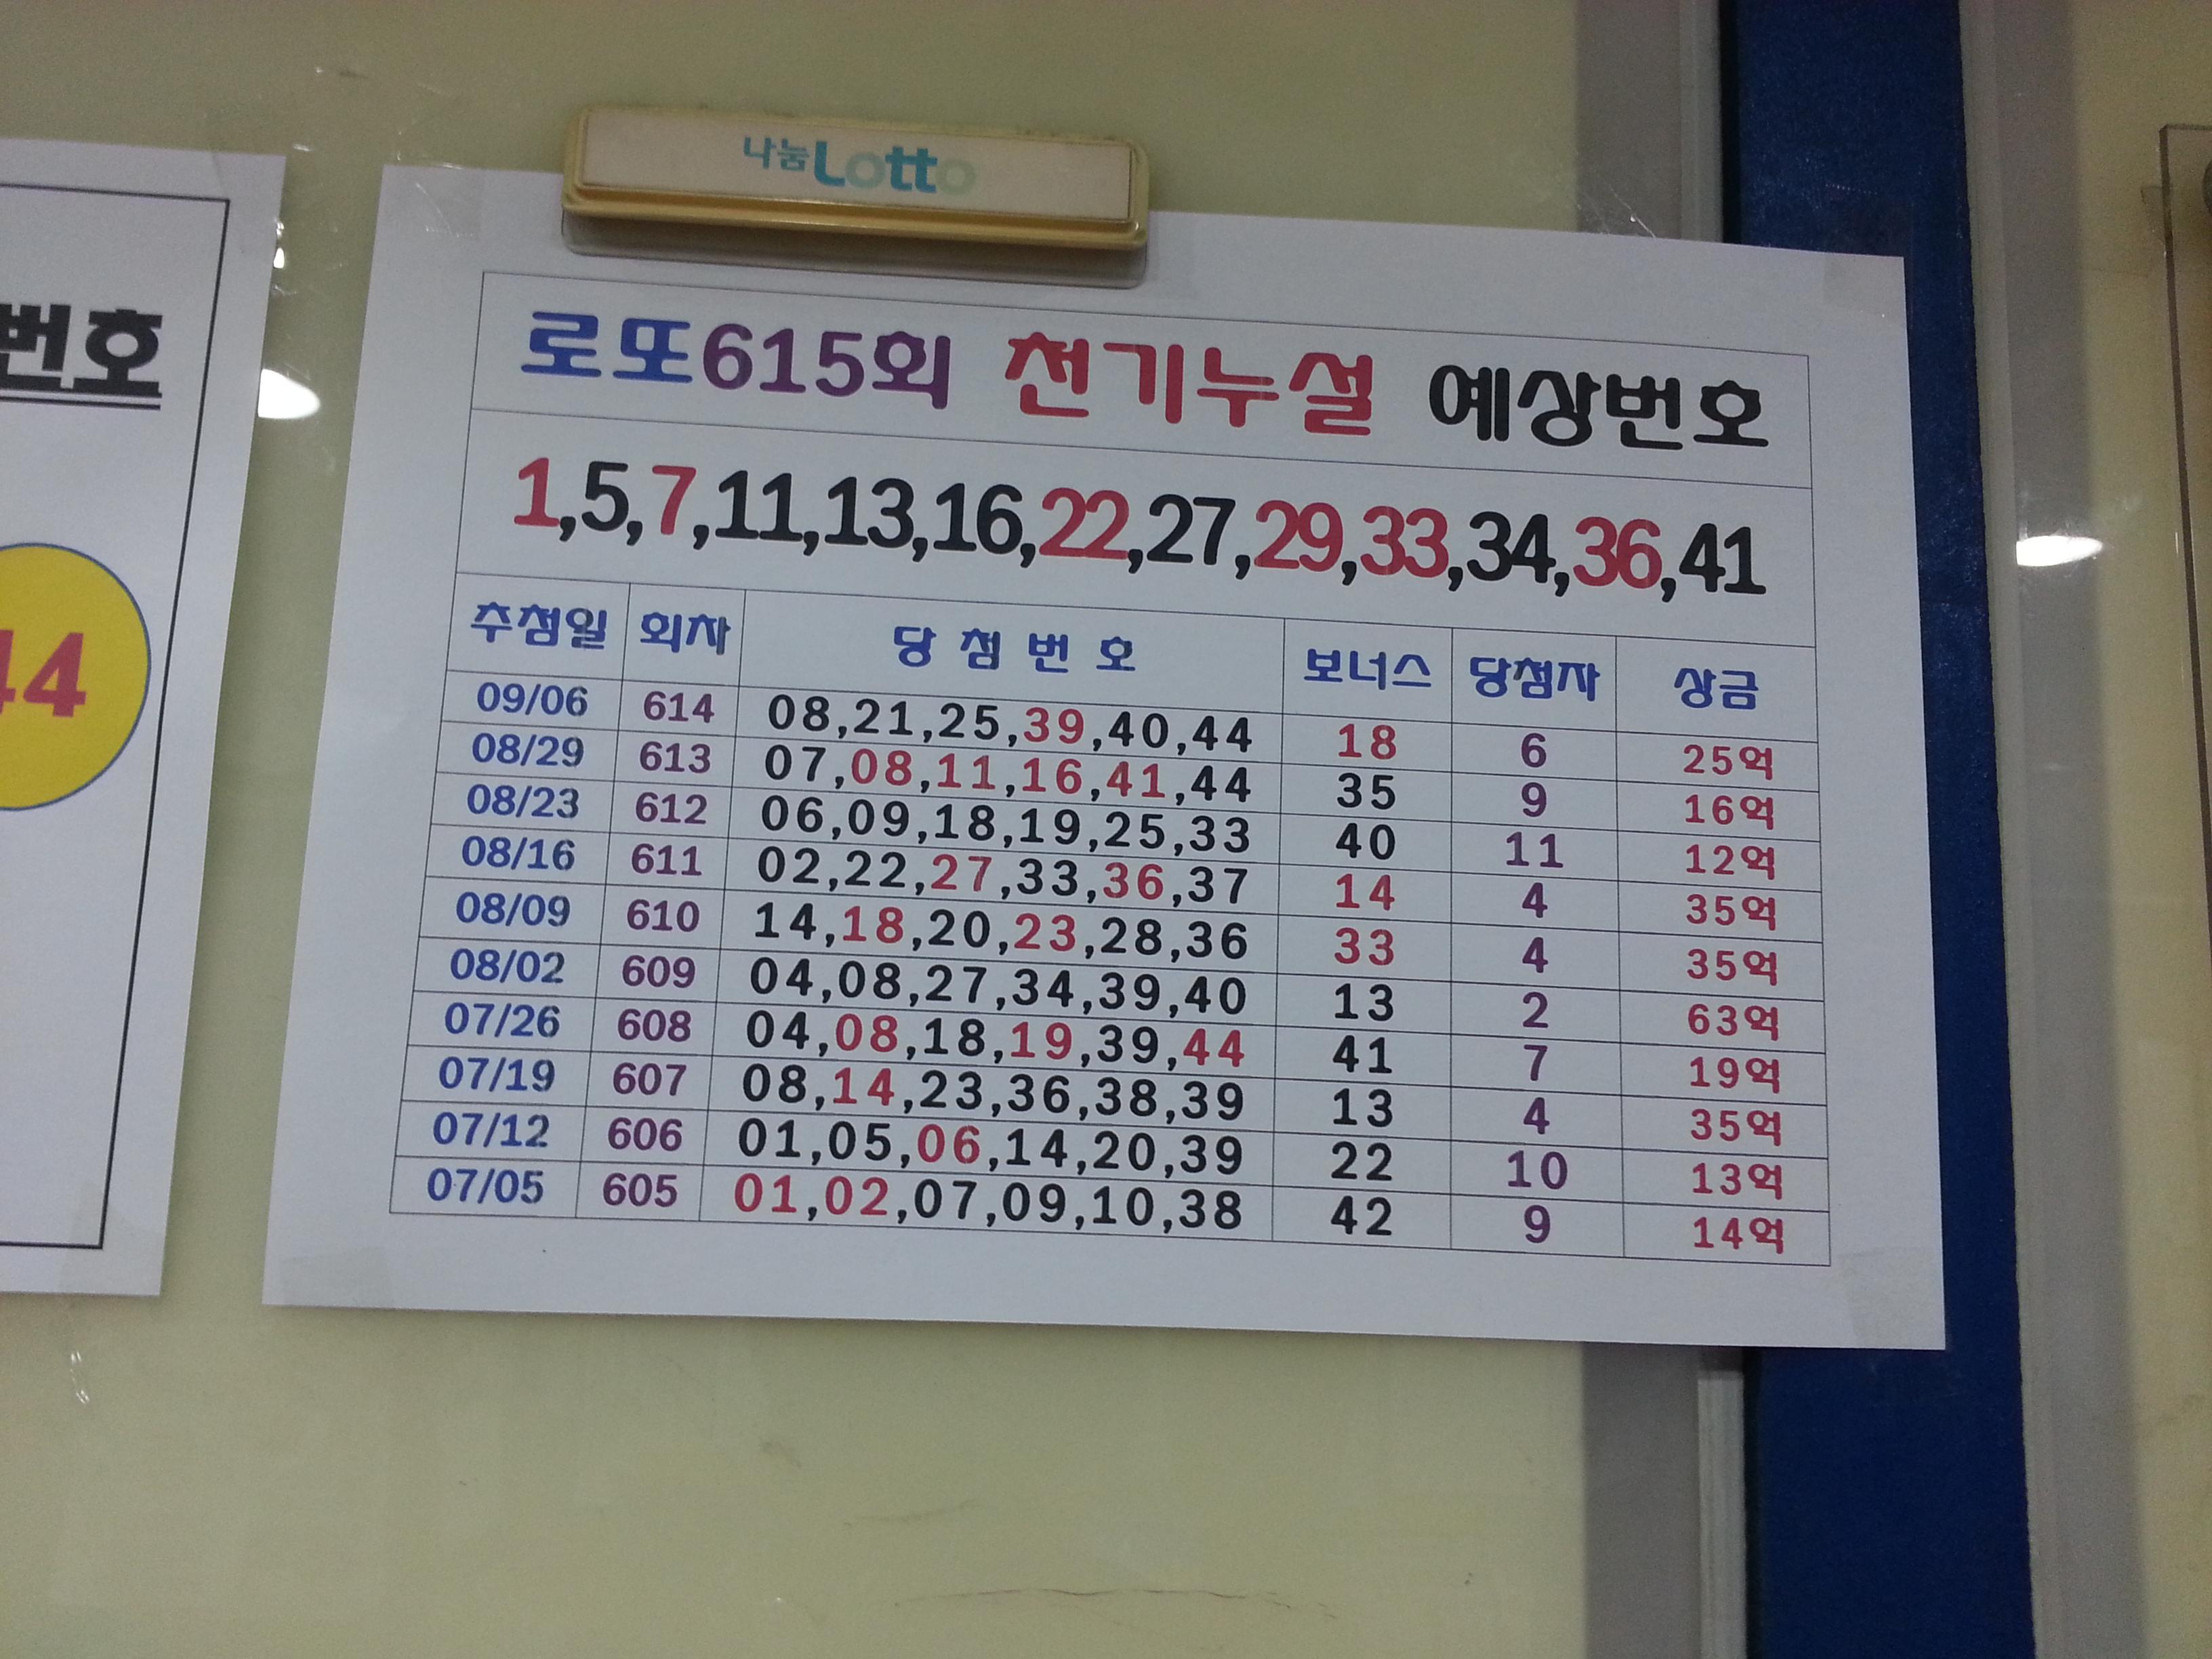 나눔Lotto
번호
44
로또615회 천기누설 예상번호
1,5,7,11,13,16,22,27,29,33,34,36,41
추첨일 회차 당 첨 번 호 보너스 당첨자 상금
09/06 614 08,21,25,39,40,44 18 6 25억
08/29 613 07,08,11,16,41,44 35 9 16억
08/23 612 06,09,18,19,25,33 40 11 12억
08/16 611 02,22,27,33,36,37 14 4 35억
08/09 610 14,18,20,23,28,36 33 4 35억
08/02 609 04,08,27,34,39,40 13 2 63억
07/26 608 04,08,18,19,39,44 41 7 19억
07/19 607 08,14,23,36,38,39 13 4 35억
07/12 606 01,05,06,14,20,39 22 10 13억
07/05 605 01,02,07,09,10,38 42 9 14억